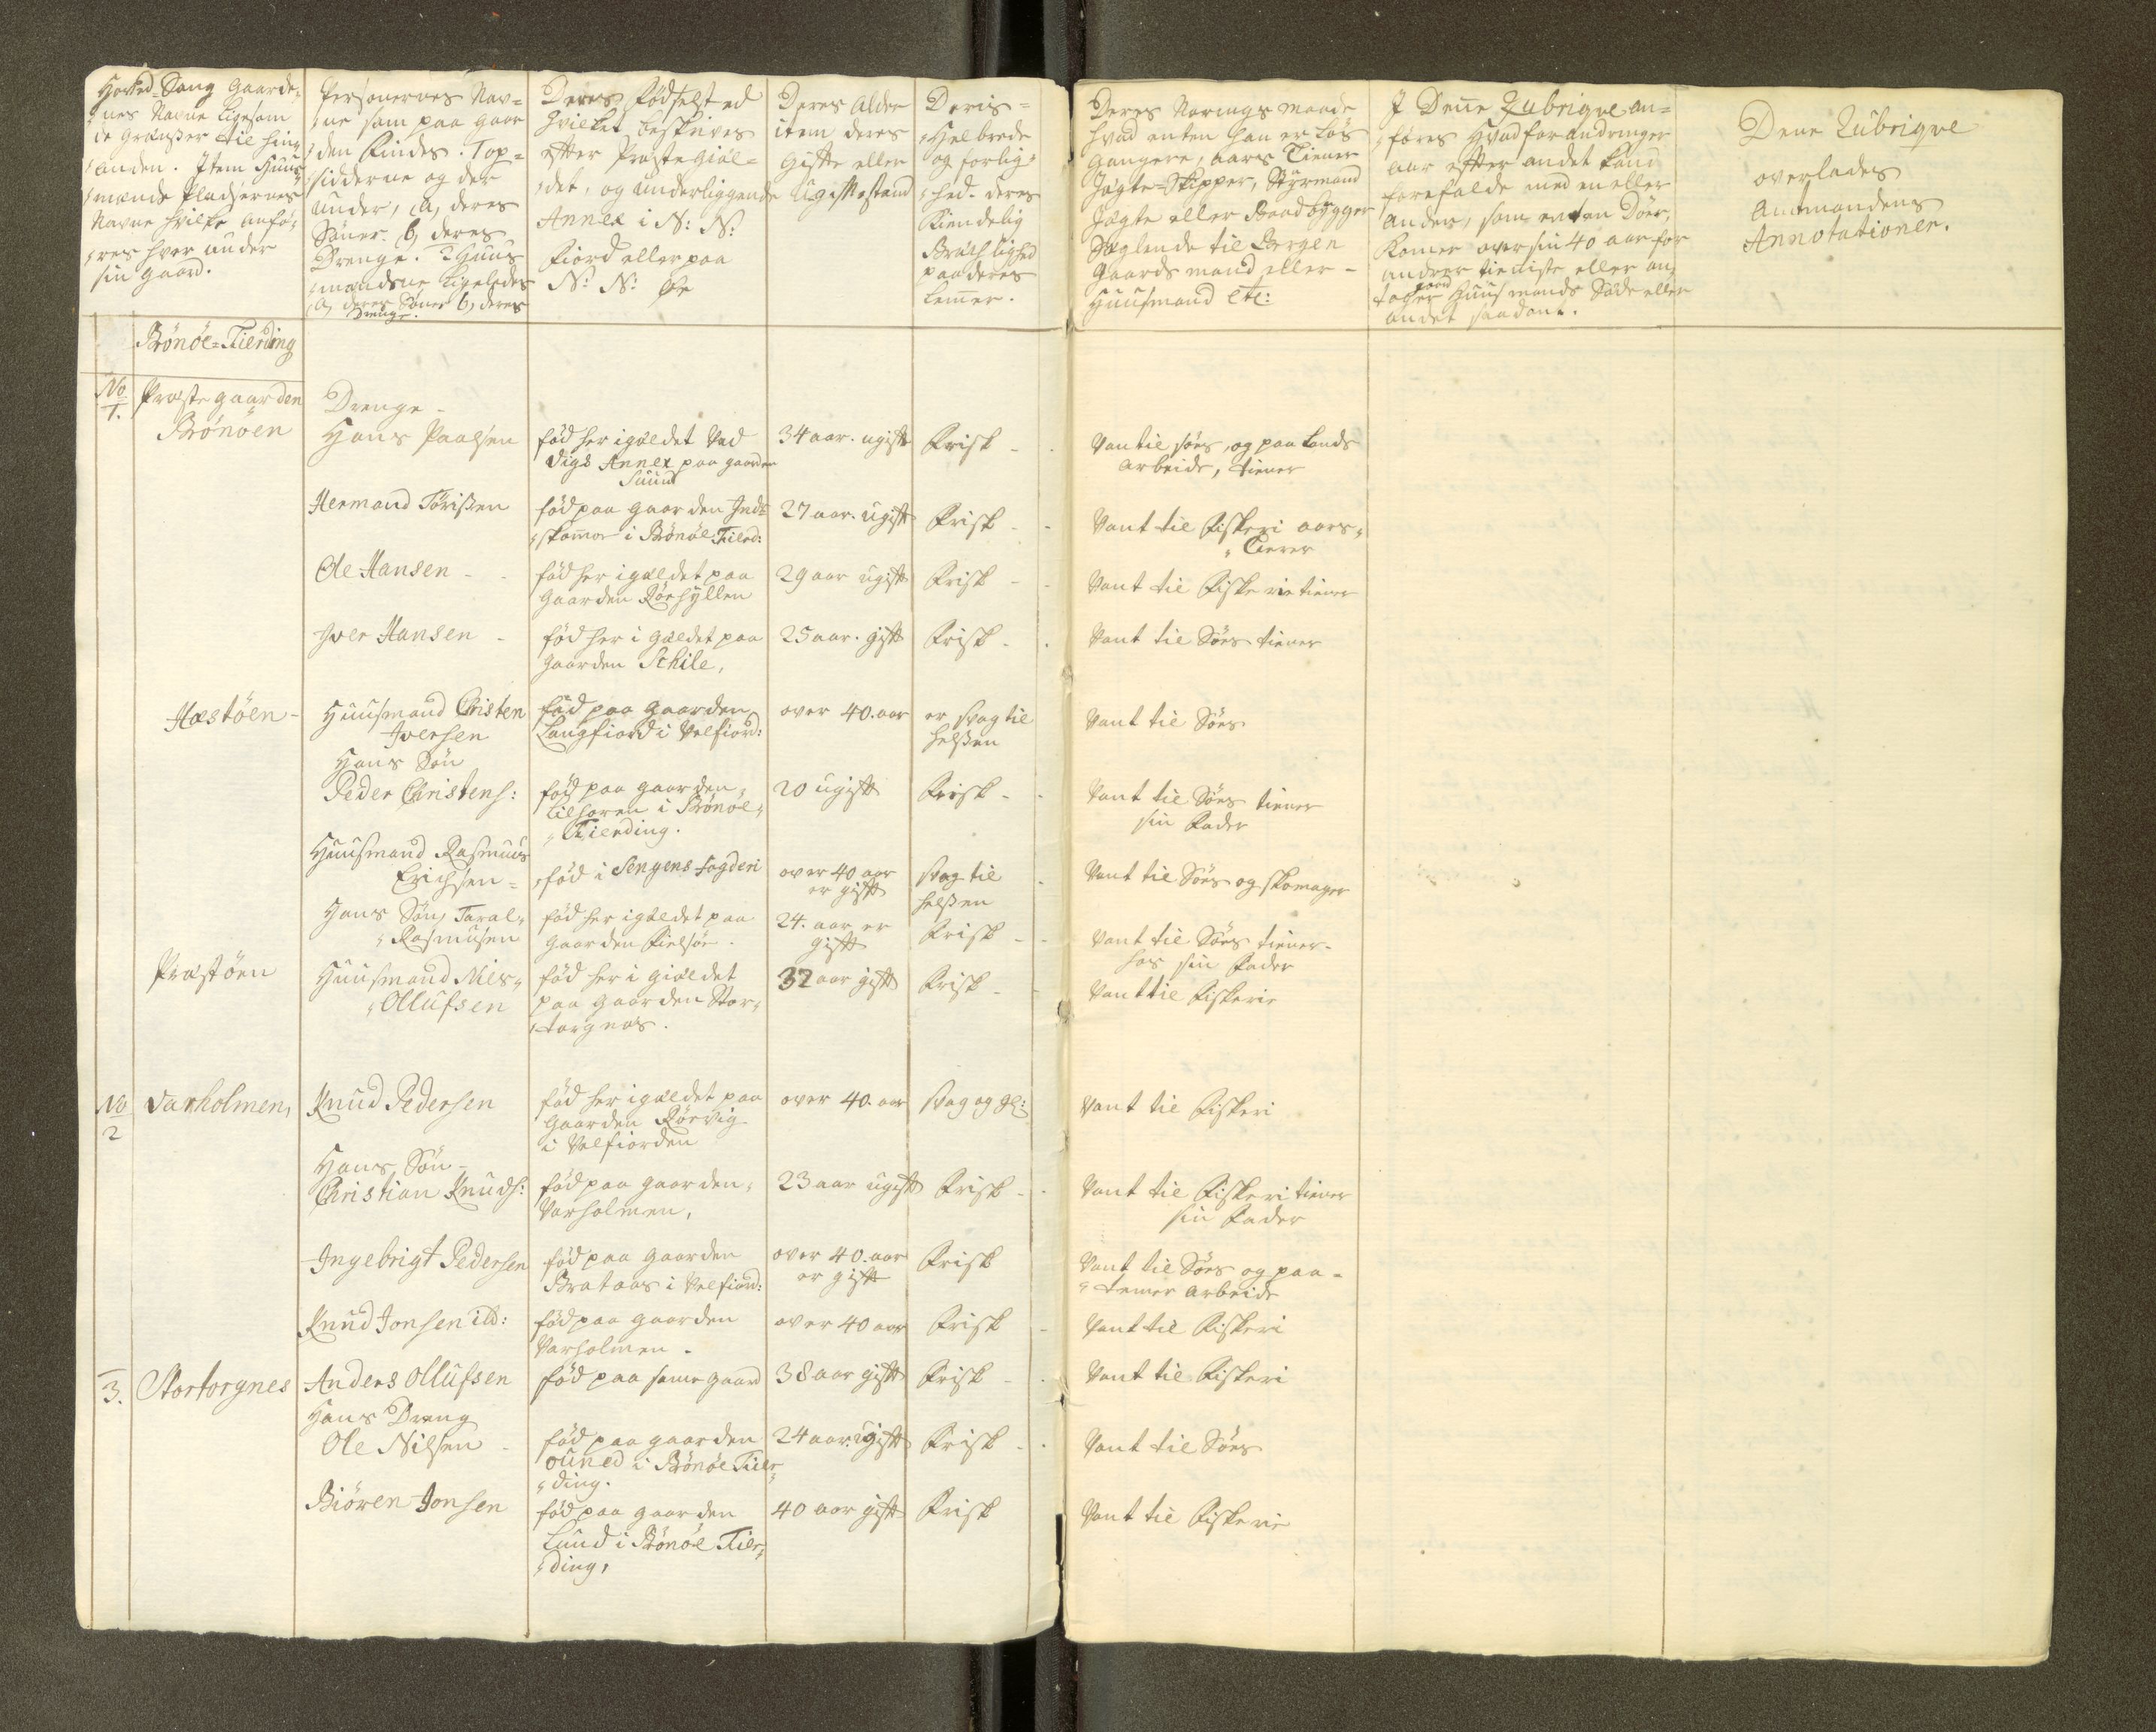 Hoved-Sang Gaarde-
nes Navne Ligesom
de grændser til hin-
anden. Item Huus-
mænds Pladsernes
Navne hvilke anfø-
res hver under
sin gaard.
Personernes Nav-
ne som paa gaar
den Findes. Top-
sidderne og der
under, a, deres
Sönner. b, deres
Drenge. 2 Huus
mændene Ligeledes
a, deres Sönner b, deres
Drenge.
Deres Födselsted
hvilket beskrives
efter Præstegiæl-
det, og underliggende
Annex i N: N:
Fiord eller paa
N: N: Øe
Deres Alder
item deres
Gifte eller
Ugiftestand
Deris
Helbrede
og forlig-
hed. deres
Kiendelig
Bræklighed
paa deres
Lemer.
Deres Nærings maade
hvad enten han er Løs
Gangere, aars Tiener
Jægte-Skipper, Styrmand
Jægte eller Baad bygger
Seglende til Bergen
Gaards mand eller -
Huusmand etc:
I Dene Rubriqve an-
føres Hvad forandringer
aar efter andet kand
forefalde med en eller
anden, som enten Döer,
Komer over sin 40 aar for
andrer tieniste eller an
tager gaard Huusmands Sæde eller
andet saadant.
Dene Rubriqve
overlades
Amtmandens
Annotationer.
Brönöe-Fierding
No 1. Præste gaarden
Brönöen
Drenge -
Hans Paalsen
fød her i gieldet Vad
vigs Annex paa gaarden
Suund
34 aar. ugift
Frisk -
Van til søes, og paa Lands
Arbeide, tiener
Hermand Törisen
fød paa gaarden Ind-
skammer i Brönöe Fierd:
27 aar. ugift
Frisk -
Vant til Fiskeri aars-
Tiener
Ole Hansen -
fød her i gieldet paa
Gaarden Rörhyllen
29 aar ugift
Frisk -
Vant til Fiskerie tiener
Iver Hansen -
fød her i gieldet paa
gaarden Schile,
25 aar. gift
Frisk -
Vant til Søes tiener
Hæstöen -
Huusmand Christen
Iversen
fød paa gaarden
Langfiord i Velfiord:
over 40. aar
er svag til
helsen
Vant til Søes
Hans Sön
Peder Christens:
fød paa gaarden
Tilhoren i Brönöe-
Fierding.
20 ugift
Frisk -
Vant til Søes tiener
sin Fader
Huusmand Rasmuus
Erichsen -
fød i Sengens Fogderi
over 40 aar
er gift
svag til
helsen
Vant til Søes og skomager
Hans Sön, Taral-
Rasmusen
fød her i gieldet paa
gaarden Fielsöe.
24. aar er
gift
Frisk -
Vant til Søes tiener-
hos sin Fader
Præstöen
Huusmand Niels-
Ollufsen
fød her i gieldet
paa gaarden Stor-
torgnæs.
32 aar gift
Frisk -
Vant til Fiskerie
No 2
Varholmen,
Knud Pedersen
fød her i gieldet paa
Gaarden Rörvig
i Velfiorden
over 40. aar
svag og gl:
Vant til Fiskeri
Hans Sön -
Christian Knuds:
fød paa gaarden,
Varholmen,
23 aar ugift
Frisk -
Vant til Fiskeri tiener
sin Fader
Ingebrigt Pedersen
fød paa gaarden
Brataas i Velfiord:
over 40. aar
er gift
Frisk
Vant til Søes og paa -
tømer Arbeide
Knud Jonsen ibd:
fød paa gaarden
Varholmen.
over 40 aar
Frisk -
Vant til Fiskeri
3. Stortorgnes
Anders Ollufsen
fød paa same gaard
38 aar gift
Frisk -
Vant til Fiskeri
Hans Dreng
Ole Nilsen -
fød paa gaarden
ouned i Brönöe Fier-
ding.
24 aar. ugift
Frisk -
Vant til Søes
Biören Jonsen
fød paa gaarden
Lund i Brönöe Fier-
ding,
40 aar gift
Frisk
Vant til Fiskerie